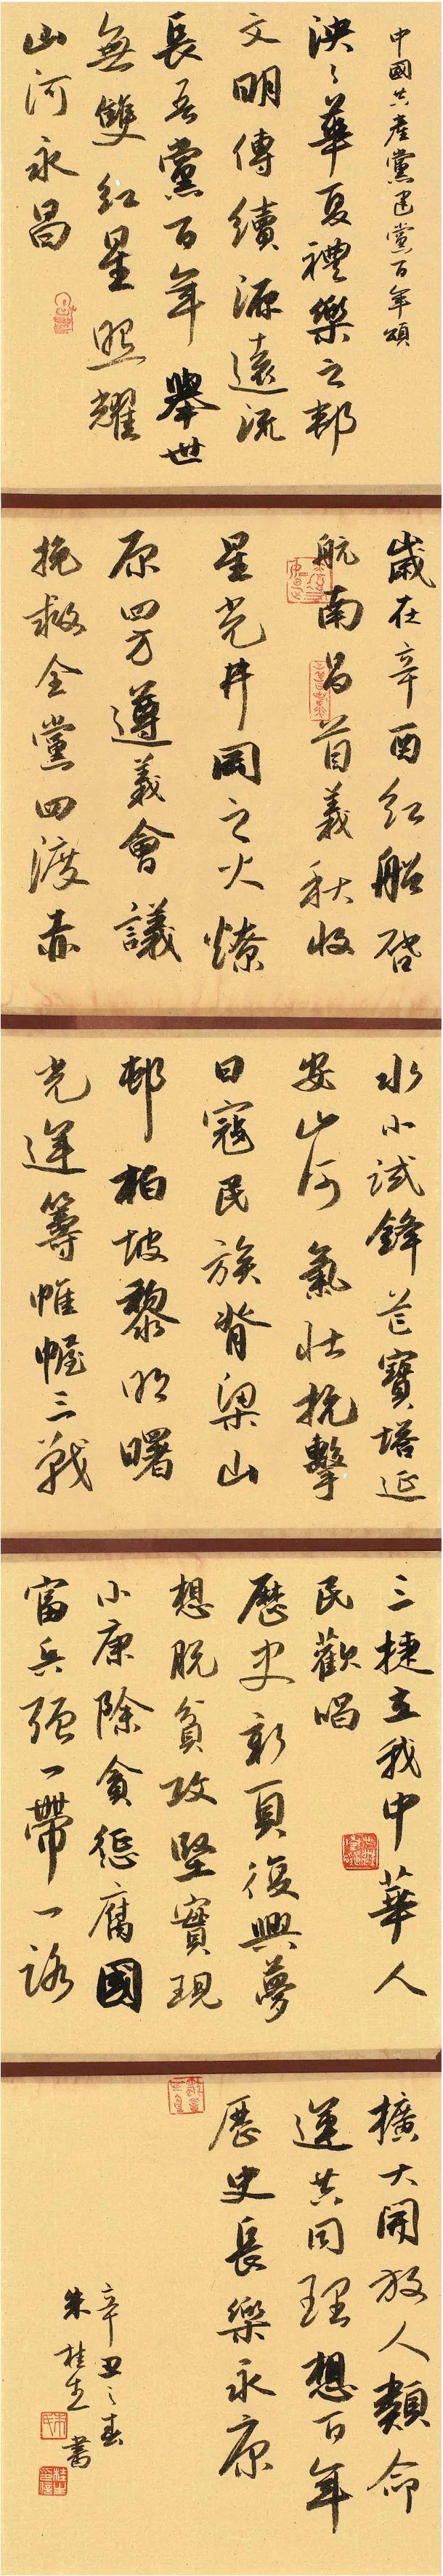 中國共產黨建黨百年頌
泱々華夏禮樂之邦
文明傳續源遠流
長吾黨百年舉世
無雙紅星照耀
山河永昌
歲在辛酉紅船啓
航南昌首義秋收
星光井岡之火燎
原四方遵義會議
挽救全黨四渡赤
水小試鋒芒寶塔延
安山河氣壯抗擊
日寇民族脊梁山
邨柏坡黎明曙
光運籌帷幄三戰
三捷立我中華人
民歡唱
歷史新頁復興夢
想脫貧攻堅實現
小康除貪懲腐國
富兵強一帶一路
擴大開放人類命
運共同理想百年
歷史長樂永康
辛丑之春
朱桂生書